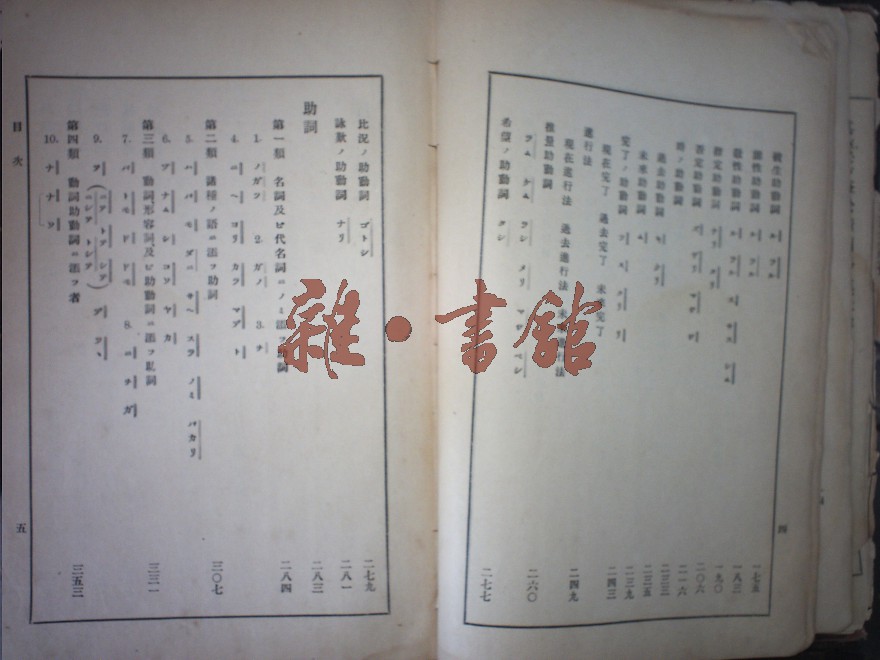 助動詞 ル ラル
一七五
助動詞 ル ラル
一八三
助動詞 ル ラル ス サス シム
一九〇
指定助動詞 ナリ タリ
二〇六
否定助動詞 ズ ザリ マジ デ
二一六
時ノ助動詞
過去助動詞 キ ケリ
二三三
未来助動詞 ム
二三五
完了ノ助動詞 ツ ヌ タリ リ
二三九
現在完了 過去完了 未来完了
二四三
進行法
現在進行法 過去進行法 未来進行法
二四九
推量助動詞
ラム ケム ラシ メリ マシ ベシ
二六〇
希望ノ助動詞 タシ
二七七
四
比況ノ助動詞 ゴトシ
二七九
詠歎ノ助動詞 ナリ
二八一
助詞
二八三
第一類 名詞及ビ代名詞ニノミ添フ助詞
二八四
1. ノガツ 2. ガノ 3. ヲ
4. ニヘ ヨリ カラ マデ ト
第二類 諸種ノ語ニ添フ助詞
三〇七
5. ハ モ ダニ サヘ スラ ノミ バカリ
6. ゾ ナム シ コソ ヤ カ
第三類 動詞形容詞及ビ助動詞ニ添フ助詞
三三一
7. バ トモ ド ドモ 8. ニ ヲ ガ
9. テ デ ツツ
第四類 動詞助動詞ニ添フ者
三五三
10. ナ ナ ソ
目次
五
雜・書館